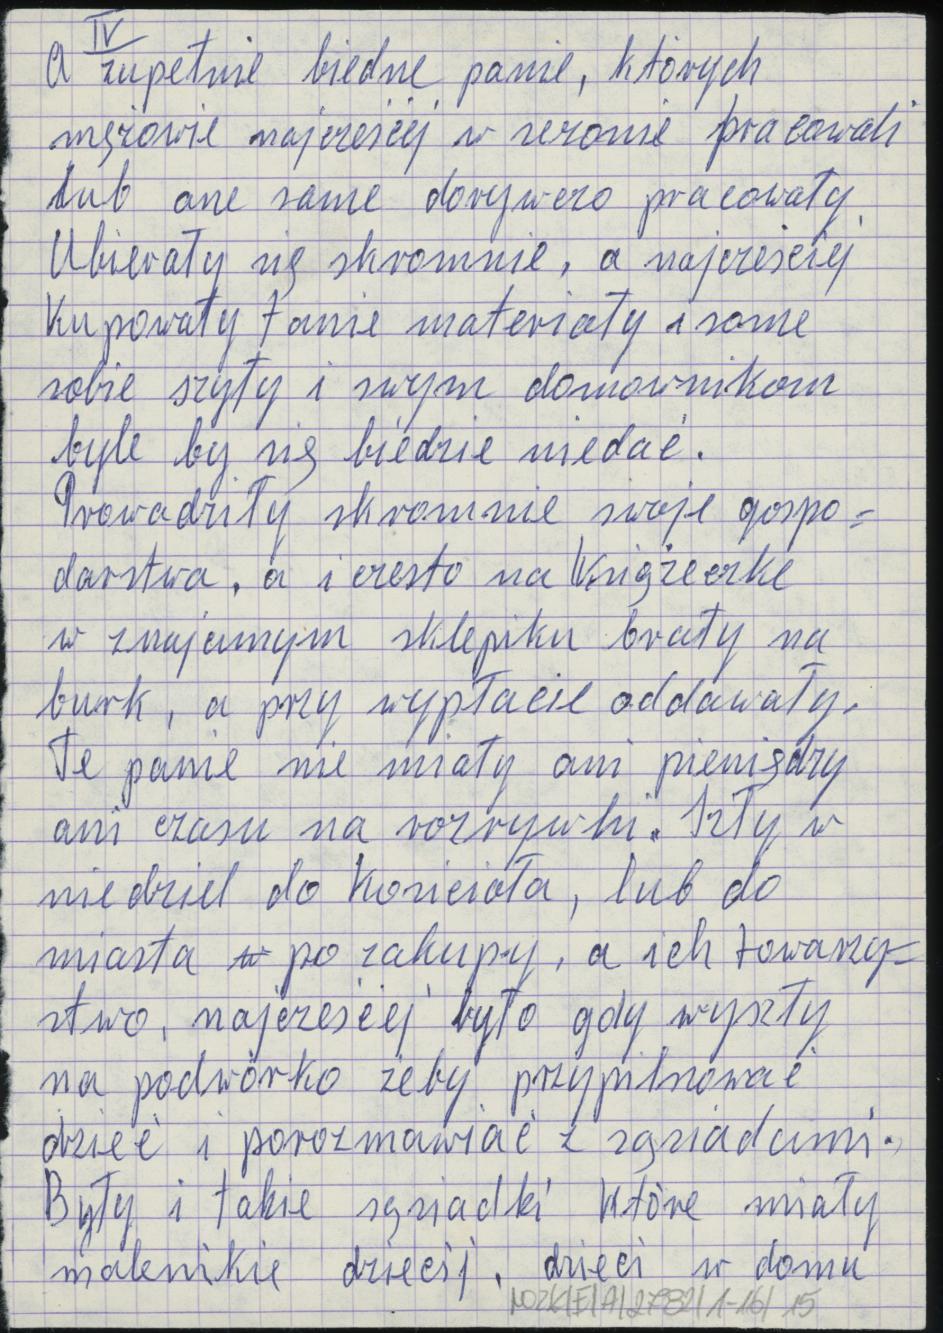 IV
A zupełnie biedne panie, których
mężowie najcześciej w sezonie pracowali
lub one same dorywczo pracowały.
Ubierały się skromnie, a najcześciej
Kupowały tanie materiały i same
sobie szyły i swym domownikom
byle by się biedzie niedać.
Prowadziły skromnie swoje gospo=
darstwa, a i czesto na Książeczke
w znajomym sklepiku brały na
burk, a przy wypłacie oddawały.
Te panie nie miały ani pieniędzy
ani czasu na rozrywki. Szły w
niedziel do Kościoła, lub do
miasta po zakupy, a ich towarzy=
stwo, najcześciej było gdy wyszły
na podwórko żeby przypilnować
dzieć i porozmawiać z sąsiadami.
Były i takie sąsiadki Które miały
malenikie dziecij, dzieci w domu
NOZK/E/A/2782/1-16/15